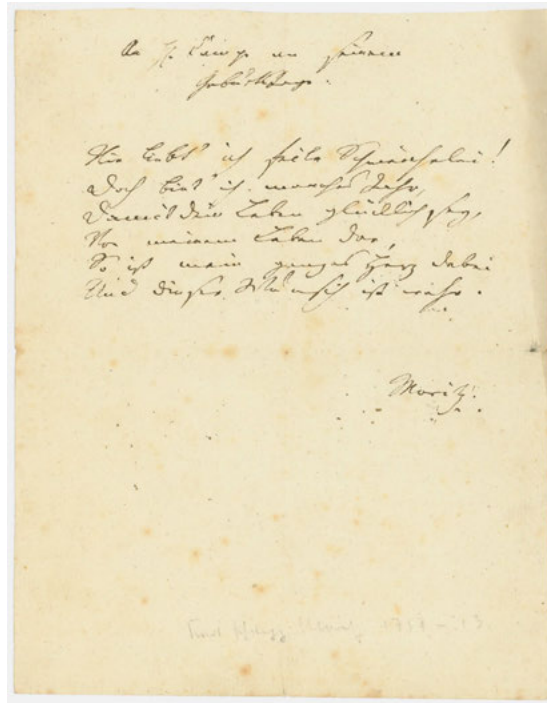 An H. Campe an seinem
Geburtstage.
Nie liebt' ich feile Schmeichelei!
Doch biet' ich manches Jahr,
Damit dein Leben glücklich sey,
Von meinem Leben dar,
So ist mein ganzes Herz dabei
Und dieser Wunsch ist wahr.
Moritz.
Karl Moritz 1757 - 93